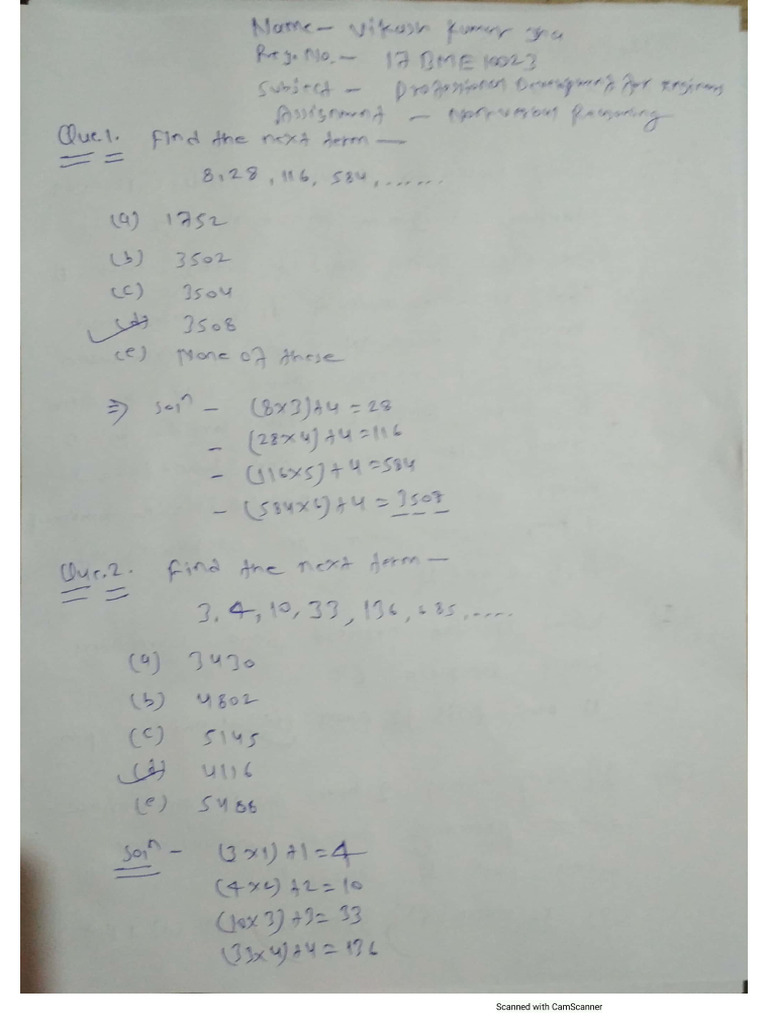 Name - Vikash Kumar Jha
Reg. No. - 17BME10023
Subject - Professional Development for Engineers
Assignment - Nonverbal Reasoning
Que.1. Find the next term —
8, 28, 116, 584, .......
(a) 1752
(b) 3502
(c) 3504
(d) 3508
(e) None of these
⇒ Solⁿ - (8x3)+4 = 28
- (28x4)+4 = 116
- (116x5)+4 = 584
- (584x6)+4 = 3508
Que.2. Find the next term —
3, 4, 10, 33, 136, 685, .....
(a) 3430
(b) 4802
(c) 5145
(d) 4116
(e) 5488
Solⁿ - (3x1)+1 = 4
(4x2)+2 = 10
(10x3)+3 = 33
(33x4)+4 = 136
Scanned with CamScanner